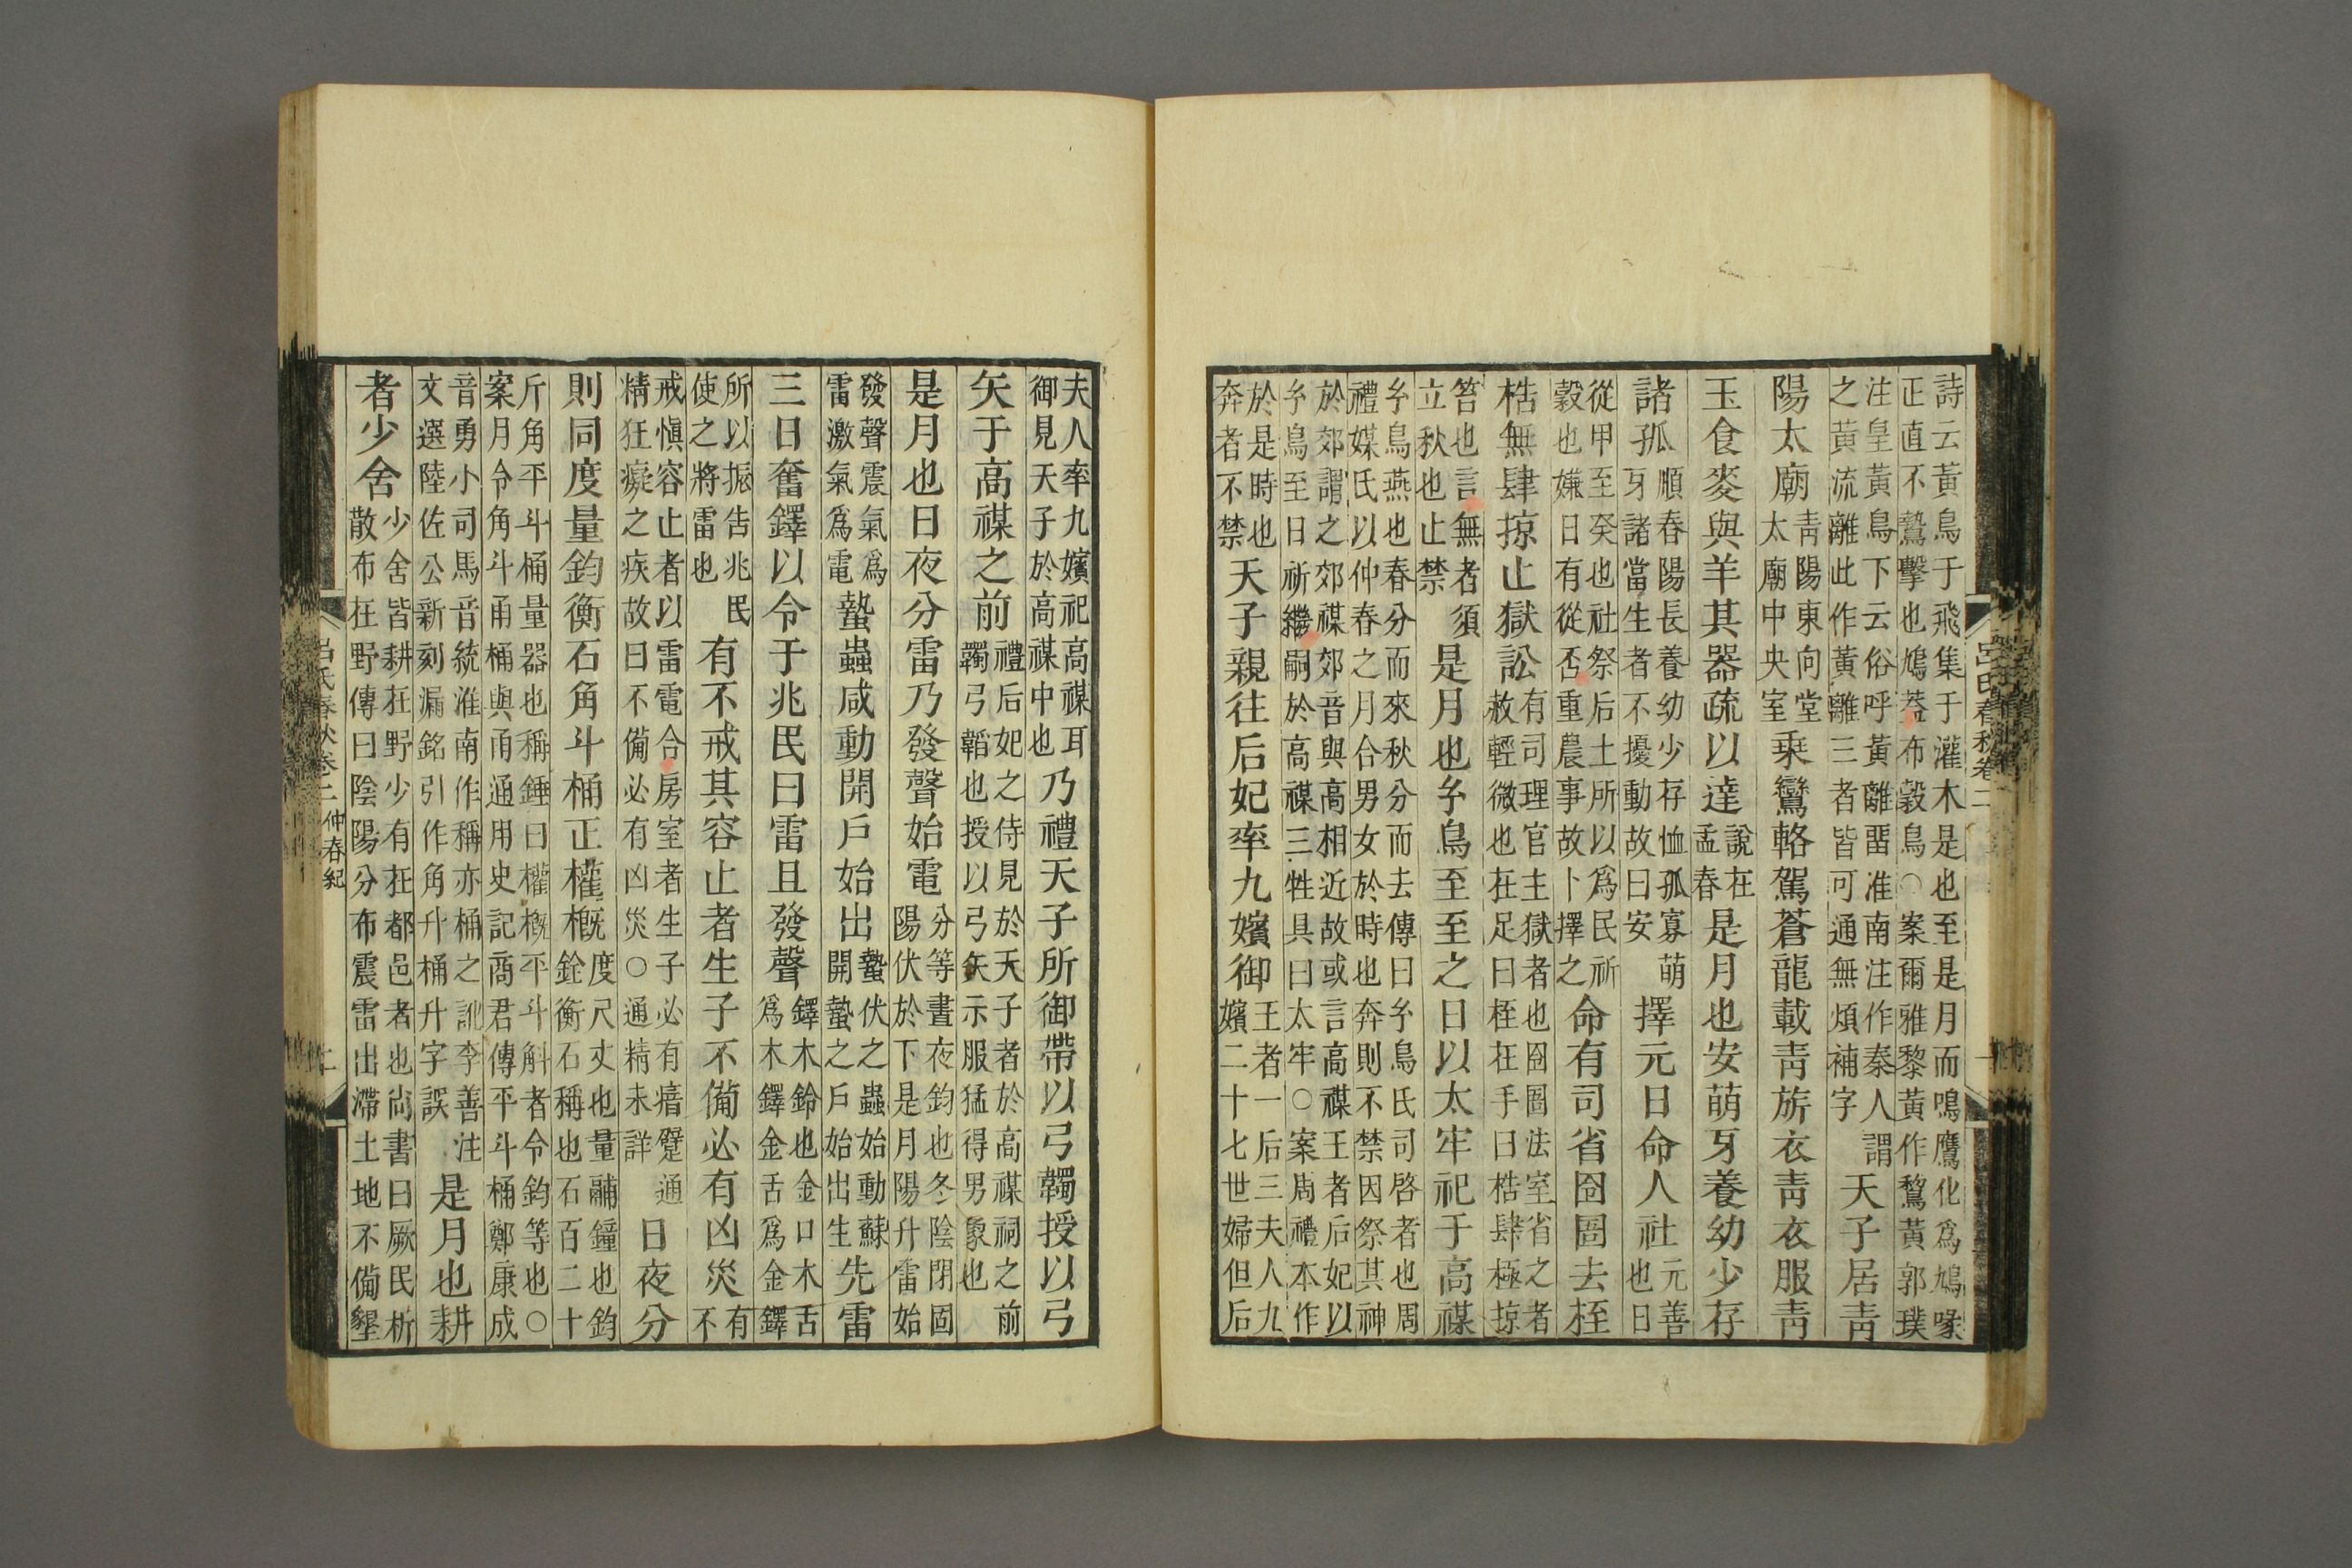 詩云黃鳥于飛集于灌木是也至是月而鳴鷹化爲鳩喙正直不鷙擊也鳩蓋布穀鳥○案爾雅黎黃作鶩黃郭璞
注皇黃鳥下云俗呼黃離畱淮南注作秦人謂之黃流離此作黃離三者皆可通無煩補字天子居靑
陽太廟靑陽東向堂太廟中央室乗鸞輅駕蒼龍載靑旂衣靑衣服靑
玉食麥與羊其器疏以達說在孟春是月也安萌牙養幼少存
諸孤順春陽長養幼少存恤孤寡萌牙諸當生者不擾動故曰安擇元日命人社元善也日
從甲至癸也社祭后土所以爲民祈穀也嫌日有從否重農事故卜擇之命有司省囹圄去桎
梏無肆掠止獄訟有司理官主獄者也囹圄法室省之者赦輕微也在足曰桎在手曰梏肆極掠
笞也言無者須立秋也止禁是月也𤣥鳥至至之日以太牢祀于高禖
𤣥鳥燕也春分而來秋分而去傳曰𤣥鳥氏司啓者也周禮媒氏以仲春之月合男女於時也奔則不禁因祭其神
於郊謂之郊禖郊音與高相近故或言高禖王者后妃以𤣥鳥至日祈繼嗣於高禖三牲具曰太牢○案周禮本作
於是時也奔者不禁天子親往后妃率九嬪御王者一后三夫人九嬪二十七世婦但后
夫人率九嬪祀高禖耳御見天子於高禖中也乃禮天子所御帶以弓韣授以弓
矢于高禖之前禮后妃之侍見於天子者於高禖祠之前韣弓韜也授以弓矢示服猛得男象也
是月也日夜分雷乃發聲始電分等晝夜鈞也冬陰閉固陽伏於下是月陽升雷始
發聲震氣爲雷激氣爲電蟄蟲咸動開戶始出蟄伏之蟲始動蘇開蟄之戶始出生先雷
三日奮鐸以令于兆民曰雷且發聲鐸木鈴也金口木舌爲木鐸金舌爲金鐸
所以振告兆民使之將雷也有不戒其容止者生子不備必有凶災有不
戒愼容止者以雷電合房室者生子必有瘖躄通精狂癡之疾故曰不備必有凶災○通精未詳日夜分
則同度量鈞衡石角斗桶正權槪度尺丈也量鬴鐘也鈞銓衡石稱也石百二十
斤角平斗桶量器也稱錘曰權槪平斗斛者令鈞等也○案月令角斗甬桶與甬通用史記商君傳平斗桶鄭康成
音勇小司馬音統淮南作稱亦桶之訛李善注文選陸佐公新刻漏銘引作角升桶升字誤是月也耕
者少舍少舍皆耕在野少有在都邑者也尙書曰厥民析散布在野傳曰陰陽分布震雷出滯土地不備墾
呂氏春秋卷二 仲春紀 二